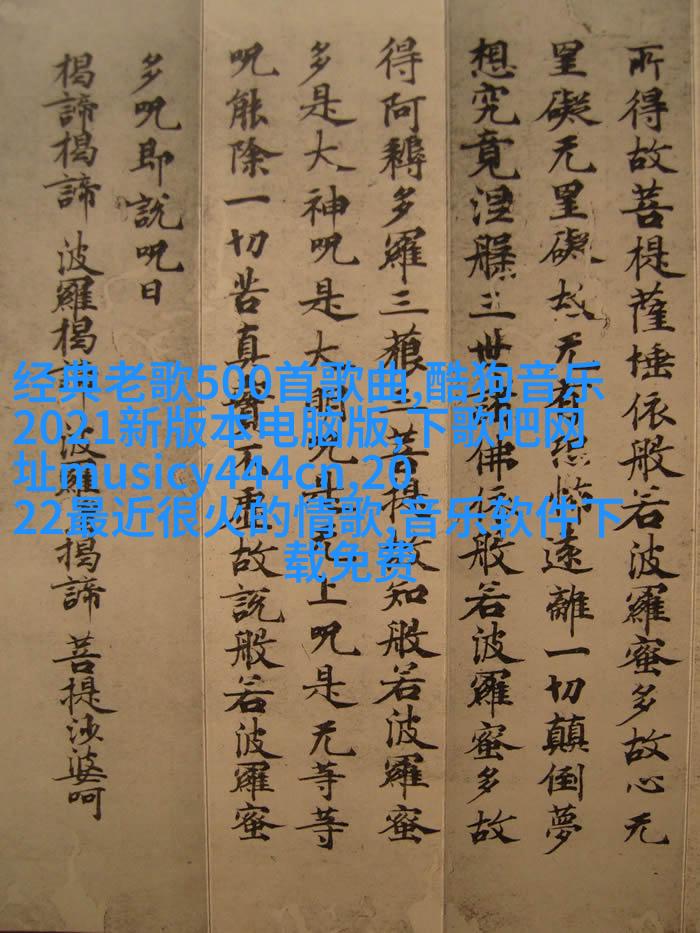 所得故菩提薩埵依般若波羅蜜多故心无
罣礙无罣礙故无有恐怖遠離一切顛倒夢
想究竟涅槃三世諸佛依般若波羅蜜多故
得阿耨多羅三藐三菩提故知般若波羅蜜
多是大神呪是大明呪是无上呪是无等等
呪能除一切苦真實不虛故說般若波羅蜜
多呪即說呪曰
揭諦揭諦 波羅揭諦 波羅揭諦 菩提沙婆呵
经典老歌500首歌曲,酷狗音乐
2021新版本电脑版,下歌吧网
址musicy444cn,20
22最近很火的情歌,音乐软件下
载免费